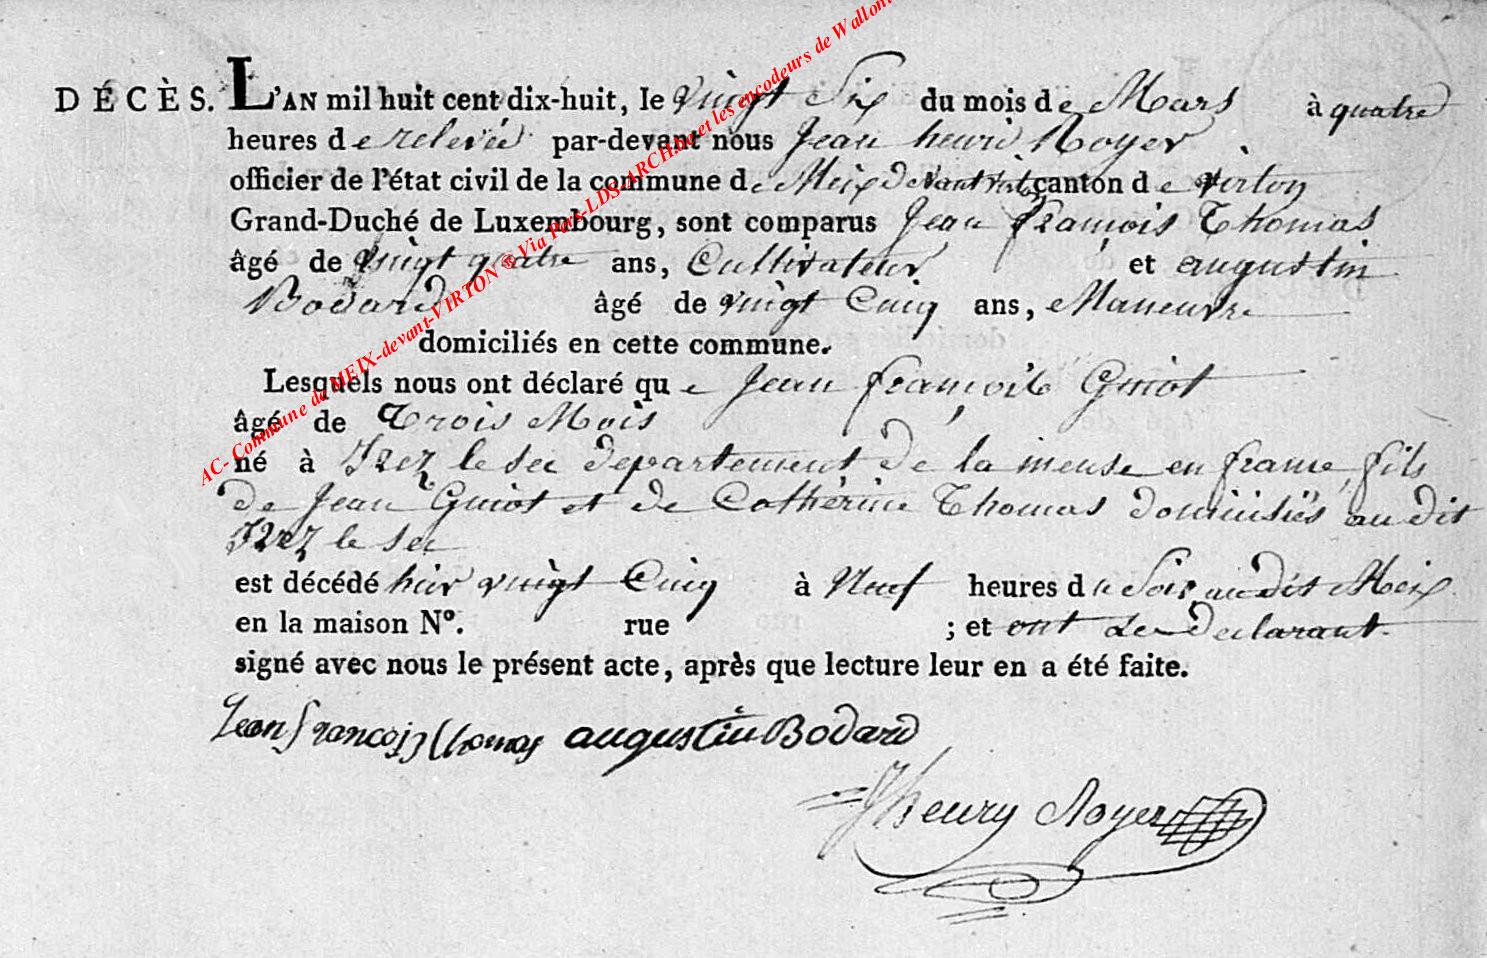 DÉCÈS. L'AN mil huit cent dix-huit, le vingt Six du mois de Mars à quatre
heures de relevée par-devant nous Jean henri Royer
officier de l'état civil de la commune de Meix devant virton canton de virton
Grand-Duché de Luxembourg, sont comparus Jean françois Thomas
âgé de vingt quatre ans, Cultivateur et augustin
Bodard âgé de vingt Cinq ans, Maneuvre
domiciliés en cette commune.
Lesquels nous ont déclaré que Jean françois Guiot
âgé de trois Mois
né à Irez le sec departement de la meuse en france, fils
de Jean Guiot et de Catherine Thomas domiciliés au dit
Irez le sec
est décédé hier vingt Cinq à Neuf heures du Soir au dit Meix
en la maison N°. rue ; et ont Les declarant
signé avec nous le présent acte, après que lecture leur en a été faite.
Jean françois thomas augustin Bodard
Jhenry Royer
AC- Commune de MEIX-devant-VIRTON ® Via Pers-LDS-ARCH.be et les encodeurs de Wallon